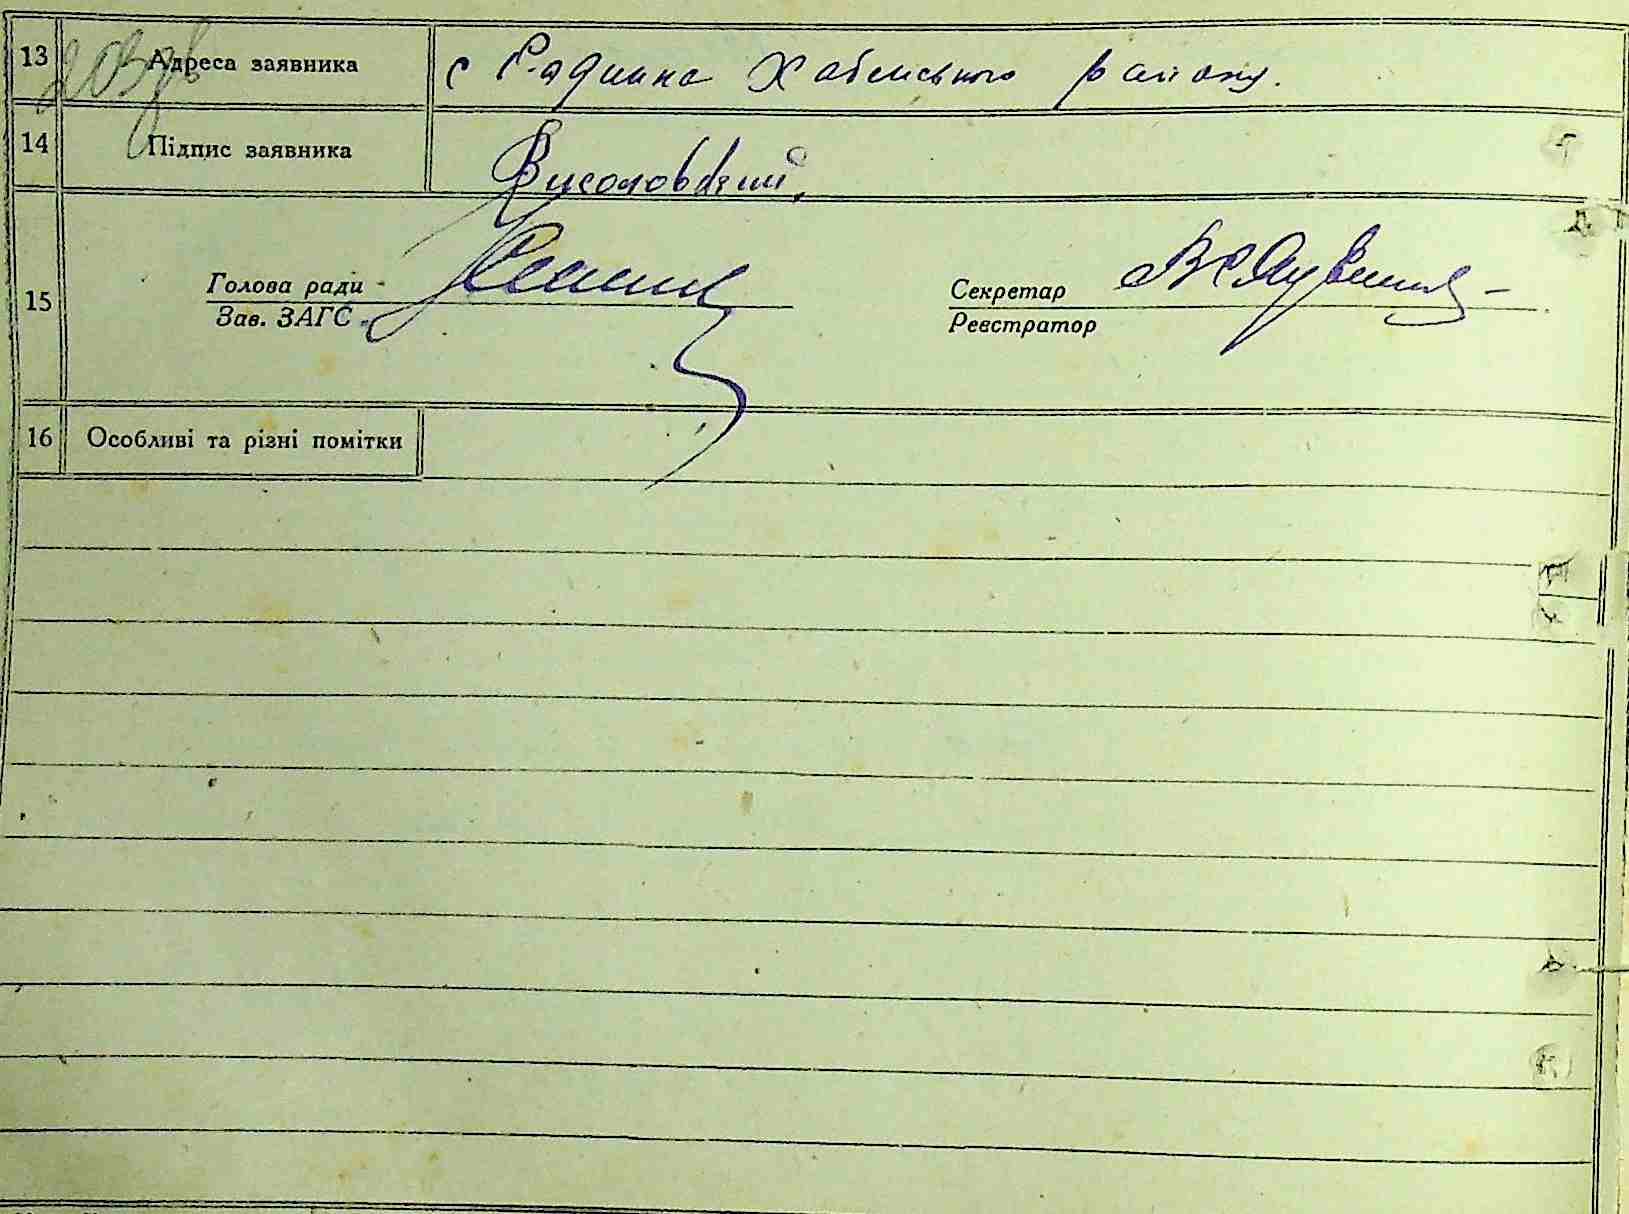 13 Адреса заявника с Радинка Хабенського району.
14 Підпис заявника
15 Голова ради Секретар
Зав. ЗАГС Реєстратор
16 Особливі та різні помітки